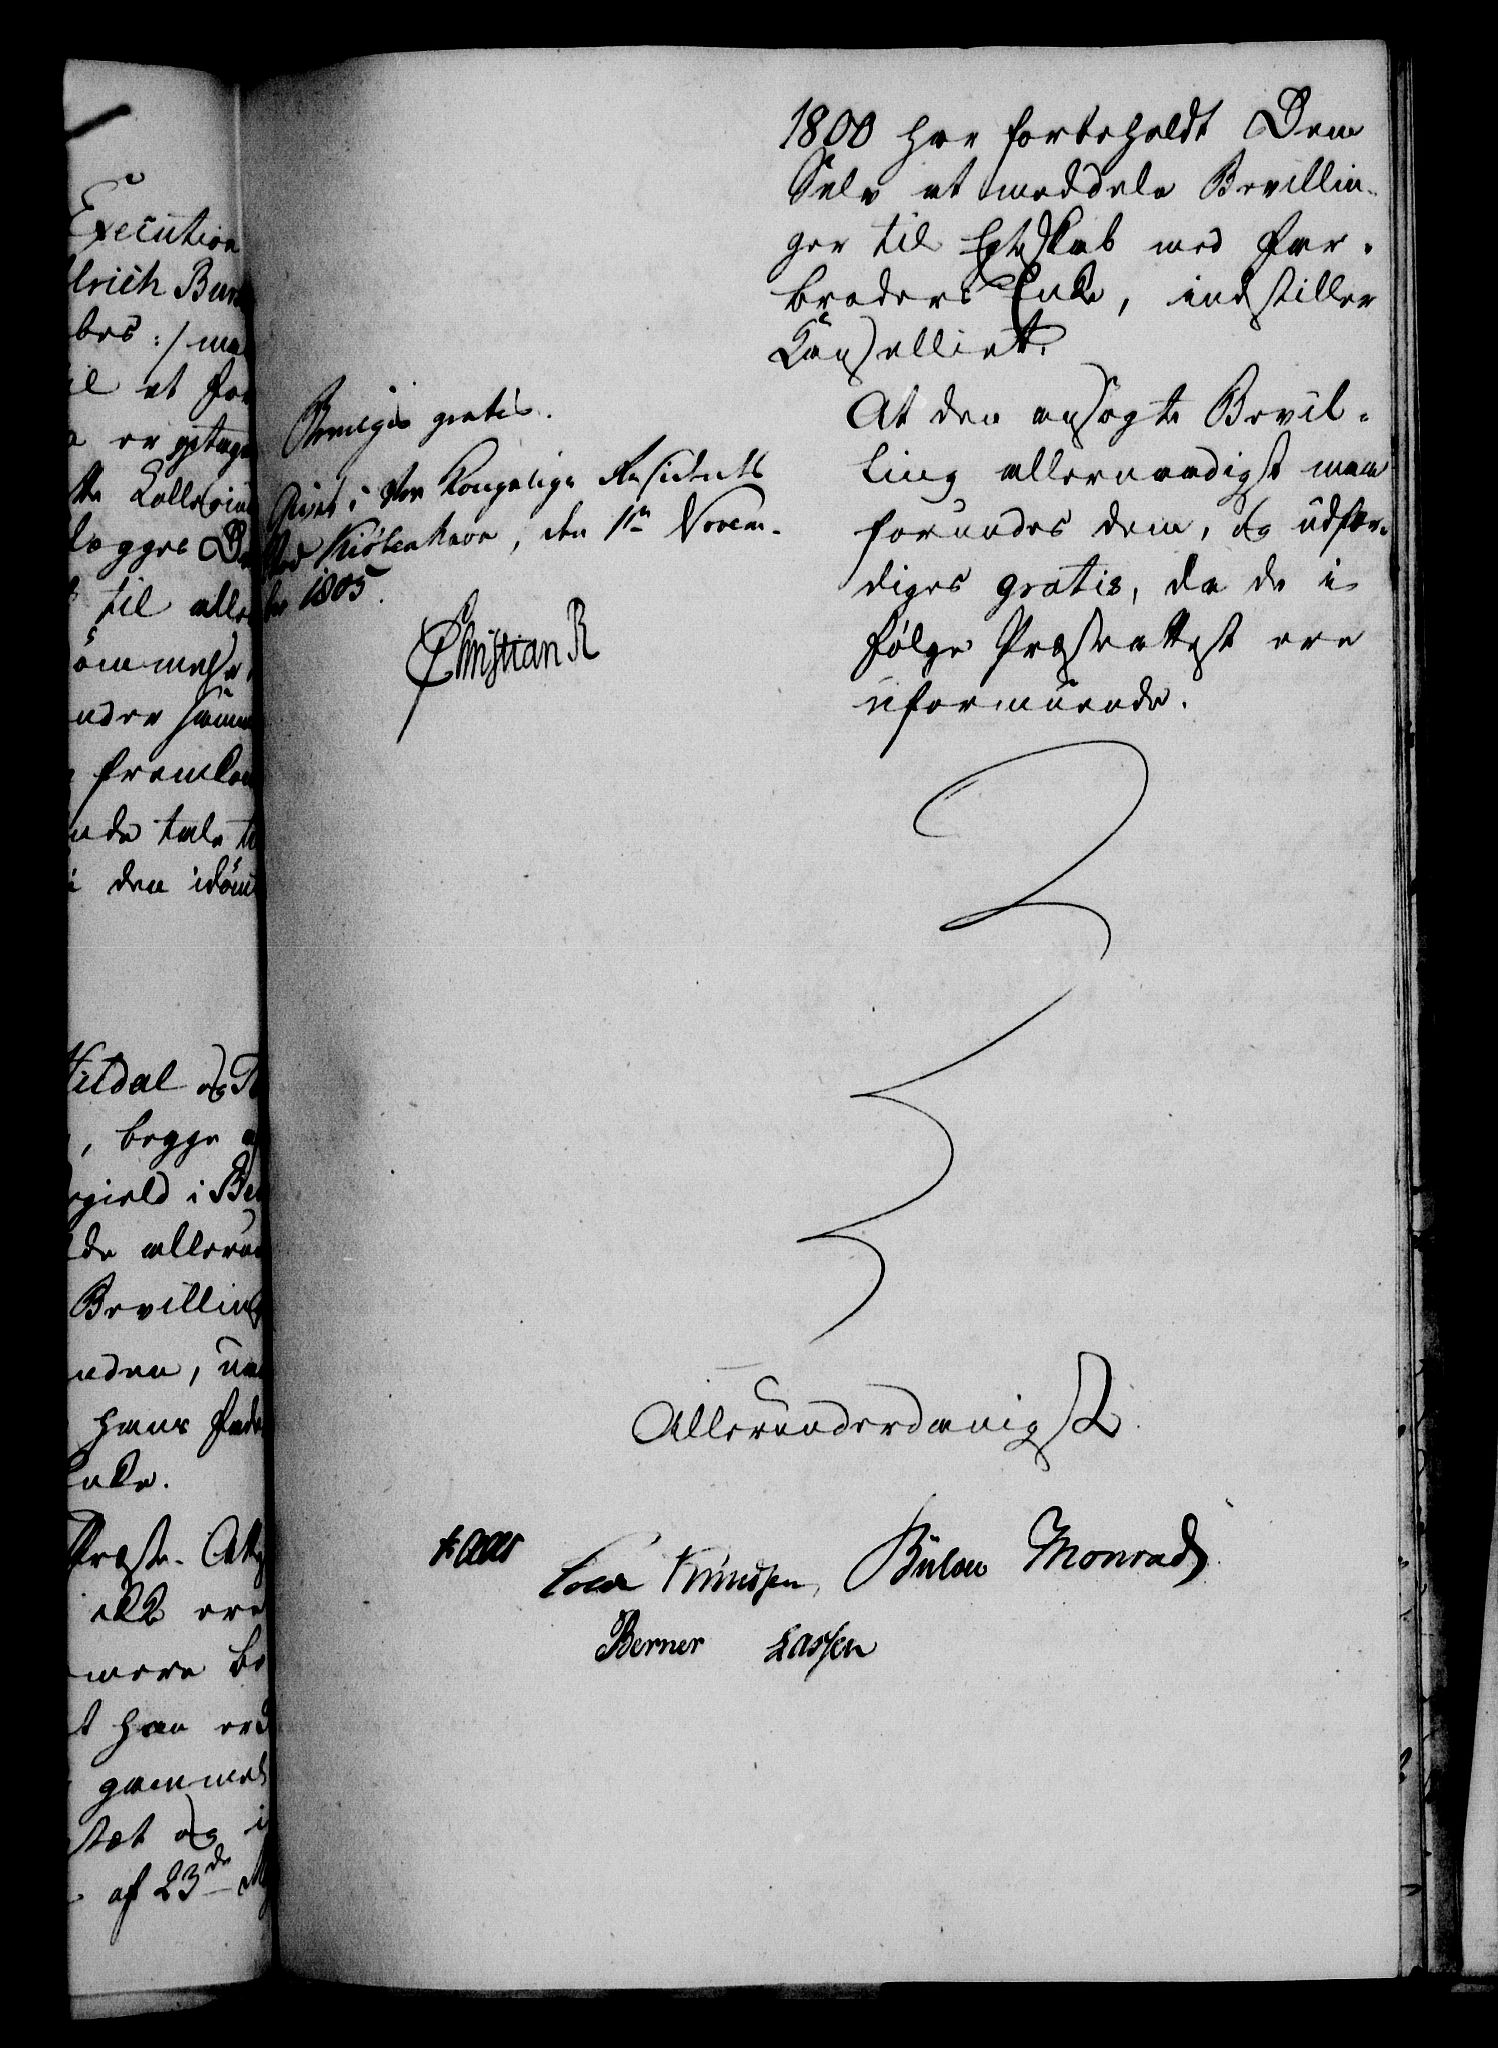 Execution
lrich Bur
bes :/ ma
il at for
er optage
tte Collegiu
lægges De
til alle
ömmelse
ndre
fremkom
nde tale ti
i den idöm
Vitdal og
, begge
rgield i Ber
de allerun
Bevilling
nden,
hans Fad
Enke.
Præste-Att
ikke ere
mere be
t han er
gammel
og i
af 23de
1800 har forbeholdt Dem
Selv at meddele Bevillin-
ger til Egteskab med Far-
broders Enke, indstiller
Kanselliet.
At den ansøgte Bevil-
ling allernaadigst maa
forundes dem, og udfær-
diges gratis, da de i
følge Præsteattest ere
uformuende.
Bevilges gratis.
Givet i Vor Kongelige Residents
Stad Kiöbenhavn, den 1te Novem-
ber 1805.
Christian R
Allerunderdanigst
Kaas
Cold Knudsen Bülow Monrad
Berner Lassen